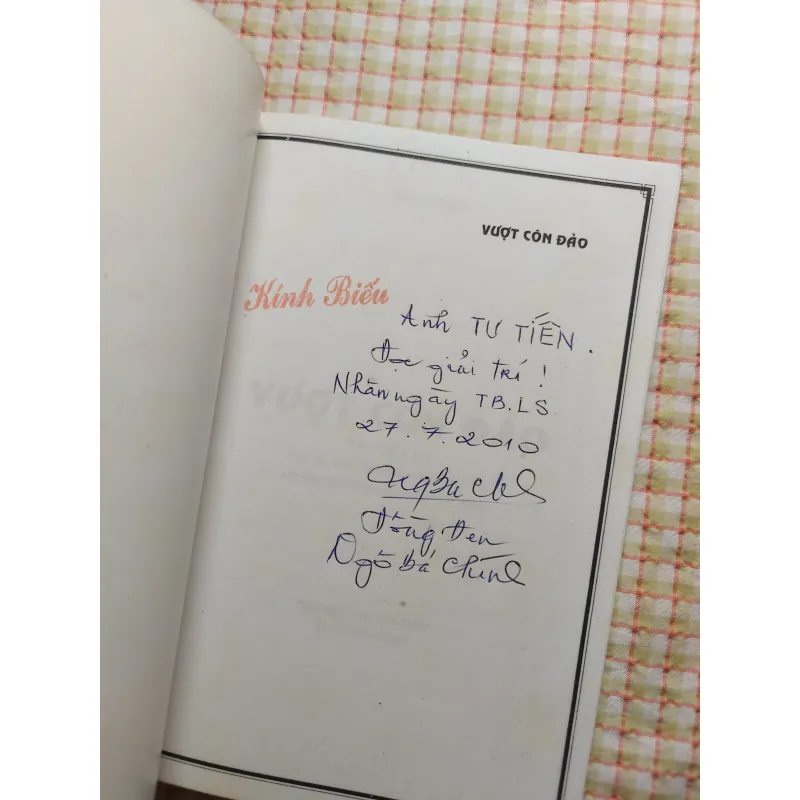 VƯỢT CÔN ĐẢO
Kính Biếu
Anh TƯ TIẾN.
Đọc giải trí!
Nhân ngày TB.LS
27.7.2010
Đồng Đen
Ngô Bá Chính